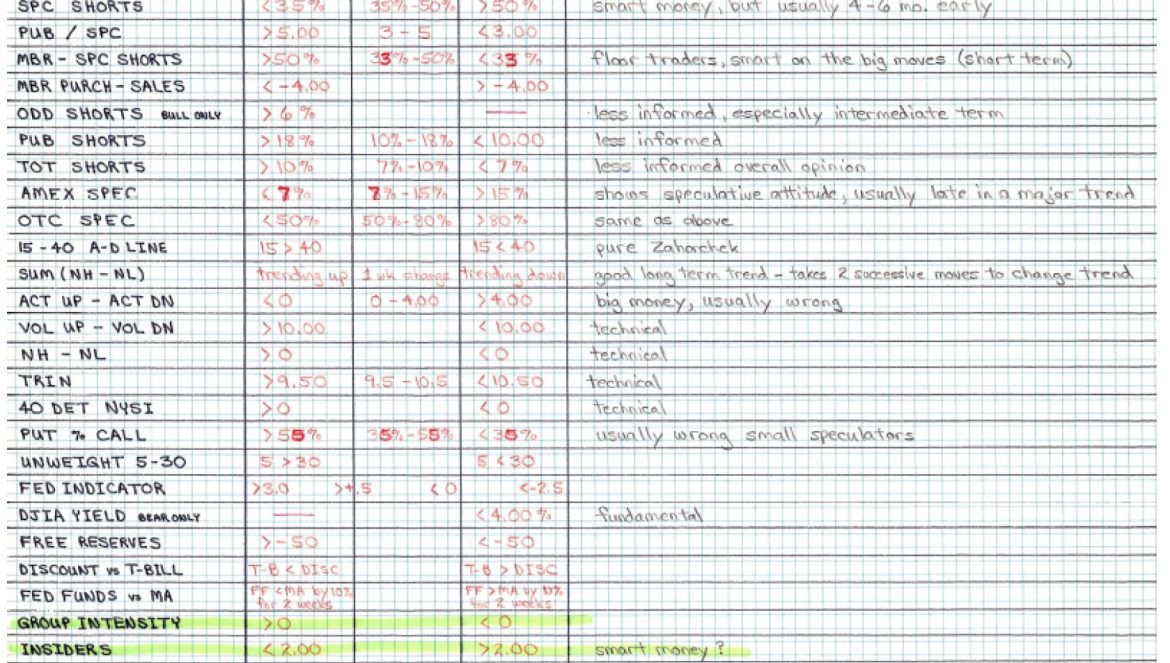 SPC SHORTS <35% 35%-50% >50% smart money, but usually 4-6 mo. early
PUB / SPC >5.00 3-5 <3.00
MBR - SPC SHORTS >50% 33%-50% <33% floor traders, smart on the big moves (short term)
MBR PURCH - SALES <-4.00 >-4.00
ODD SHORTS BULL ONLY >6% — less informed, especially intermediate term
PUB SHORTS >18% 10%-18% <10.00 less informed
TOT SHORTS >10% 7%-10% <7% less informed overall opinion
AMEX SPEC <7% 7%-15% >15% shows speculative attitude, usually late in a major trend
OTC SPEC <50% 50%-80% >80% same as above
15-40 A-D LINE 15>40 15<40 pure Zaharchek
SUM (NH - NL) trending up 1 wk change trending down good long term trend - takes 2 successive moves to change trend
ACT UP - ACT DN <0 0-4.00 >4.00 big money, usually wrong
VOL UP - VOL DN >10.00 <10.00 technical
NH - NL >0 <0 technical
TRIN >9.50 9.5-10.5 <10.50 technical
40 DET NYSI >0 <0 technical
PUT % CALL >55% 35%-55% <35% usually wrong small speculators
UNWEIGHT 5-30 5>30 5<30
FED INDICATOR >3.0 >+.5 <0 <-2.5
DJIA YIELD BEAR ONLY — <4.00% fundamental
FREE RESERVES >-50 <-50
DISCOUNT vs T-BILL T-B < DISC T-B > DISC
FED FUNDS vs MA FF <MA by 10% for 2 weeks FF >MA by 10% for 2 weeks
GROUP INTENSITY >0 <0
INSIDERS <2.00 >2.00 smart money?